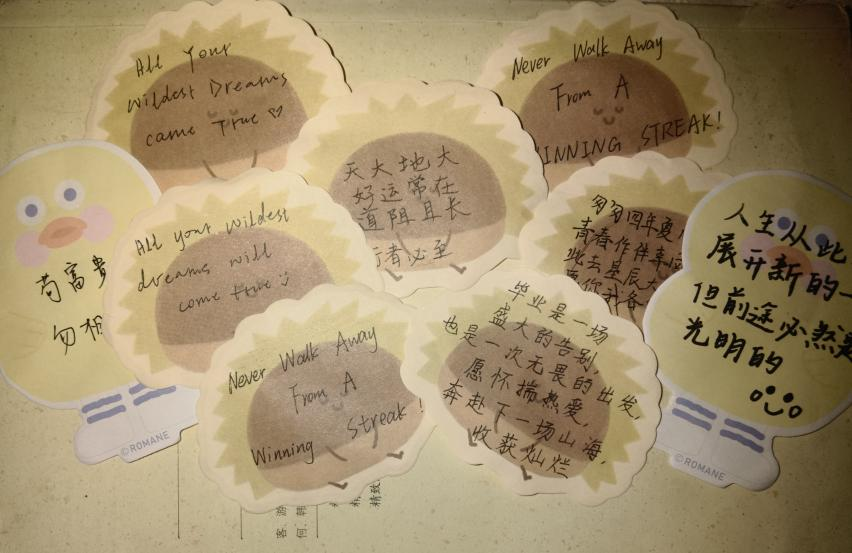 All Your
Wildest Dreams
came True
Never Walk Away
From A
WINNING STREAK!
天大地大
好运常在
道阻且长
行者必至
苟富贵
勿相
All your wildest
dreams will
come true
匆匆四年夏
青春作伴
此去星辰大
人生从此
展开新的一
但前途必然是
光明的
Never Walk Away
From A
Winning Streak!
毕业是一场
盛大的告别,
也是一次无畏的出发,
愿怀揣热爱,
奔赴下一场山海,
收获灿烂
©ROMANE
©ROMANE
客、游
何、韩
精致